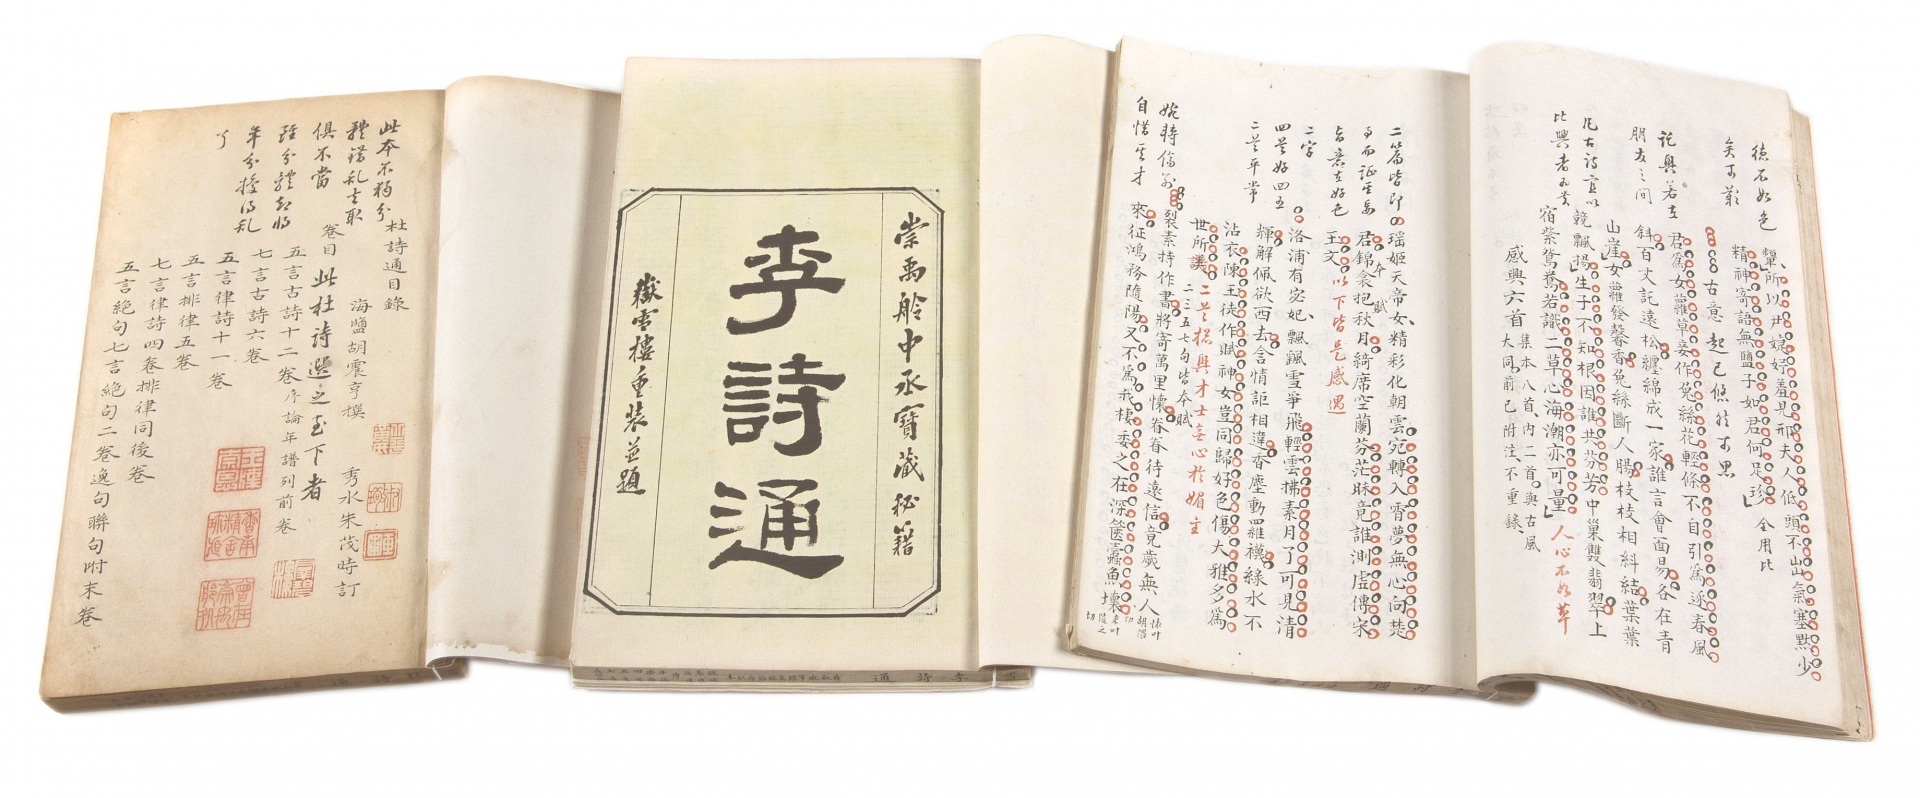 此本不獨分
體錯亂去取
俱不當
年分撥得乱
了
杜詩通目錄
海鹽胡震亨撰
秀水朱茂時訂
卷目
此杜詩選之至下者
五言古詩十二卷序論年譜列前卷
七言古詩六卷
五言律詩十一卷
五言排律五卷
七言律詩四卷排律同後卷
五言絕句七言絕句二卷逸句聯句附末卷
崇禹舲中丞寶藏秘籍
李詩通
嶽雪樓重裝並題
德不如色
比興若在
朋友之間
凡古詩宜以
比興者為貴
顰所以尹婕妤羞見邢夫人低頭不出氣塞默少
精神寄語無鹽子如君何足珍
全用比
古意
君為女蘿草妾作兔絲花輕條不自引為逐春風
斜百丈託遠松纏綿成一家誰言會面易各在青
山崖女蘿發馨香兔絲斷人腸枝枝相糾結葉葉
競飄揚生子不知根因誰共芬芳中巢雙翡翠上
宿紫鴛鴦若識二草心海潮亦可量
人心不如草
感興六首
集本八首內二首與古風
大同前已附注不重錄
二字
四是好四五
二是平常
瑤姬天帝女精彩化朝雲宛轉入霄夢無心向楚
君錦衾抱秋月綺席空蘭芬茫昧竟誰測虛傳宋
玉文
以下皆是感遇
洛浦有宓妃飄颻雪爭飛輕雲拂素月了可見清
輝解佩欲西去含情詎相違香塵動羅襪綠水不
沾衣陳王徒作賦神女豈同歸好色傷大雅多為
世所譏
二三五七句皆本賦
裂素持作書將寄萬里懷眷眷待遠信竟歲無人
來征鴻務隨陽又不為我棲委之在深篋蠹魚壞
自惜其才